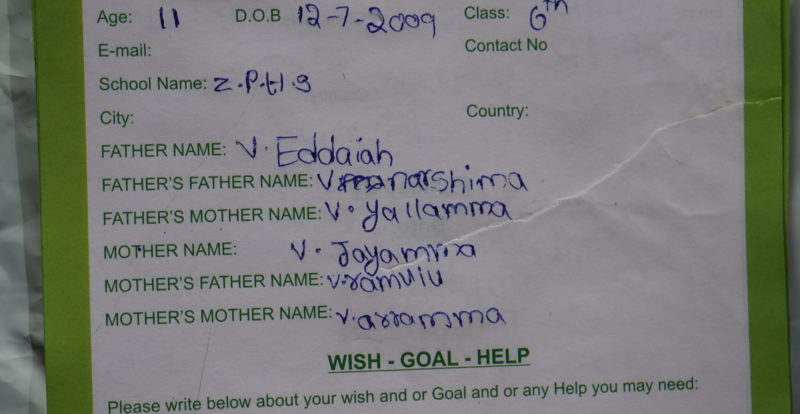 Age: 11 D.O.B 12-7-2009 Class: 6th
E-mail: Contact No
School Name: Z.P.H.S
City: Country:
FATHER NAME: V. Eddaiah
FATHER'S FATHER NAME: V narshima
FATHER'S MOTHER NAME: V. Yallamma
MOTHER NAME: V. Jayamma
MOTHER'S FATHER NAME: V. ramulu
MOTHER'S MOTHER NAME: V. arramma
WISH - GOAL - HELP
Please write below about your wish and or Goal and or any Help you may need: